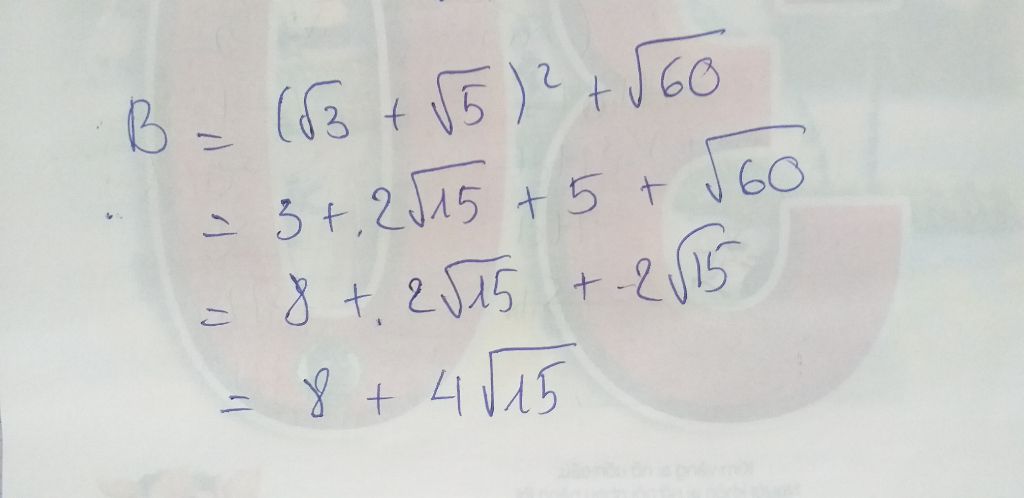 B = (√3 + √5)² + √60
= 3 + 2√15 + 5 + √60
= 8 + 2√15 + 2√15
= 8 + 4√15